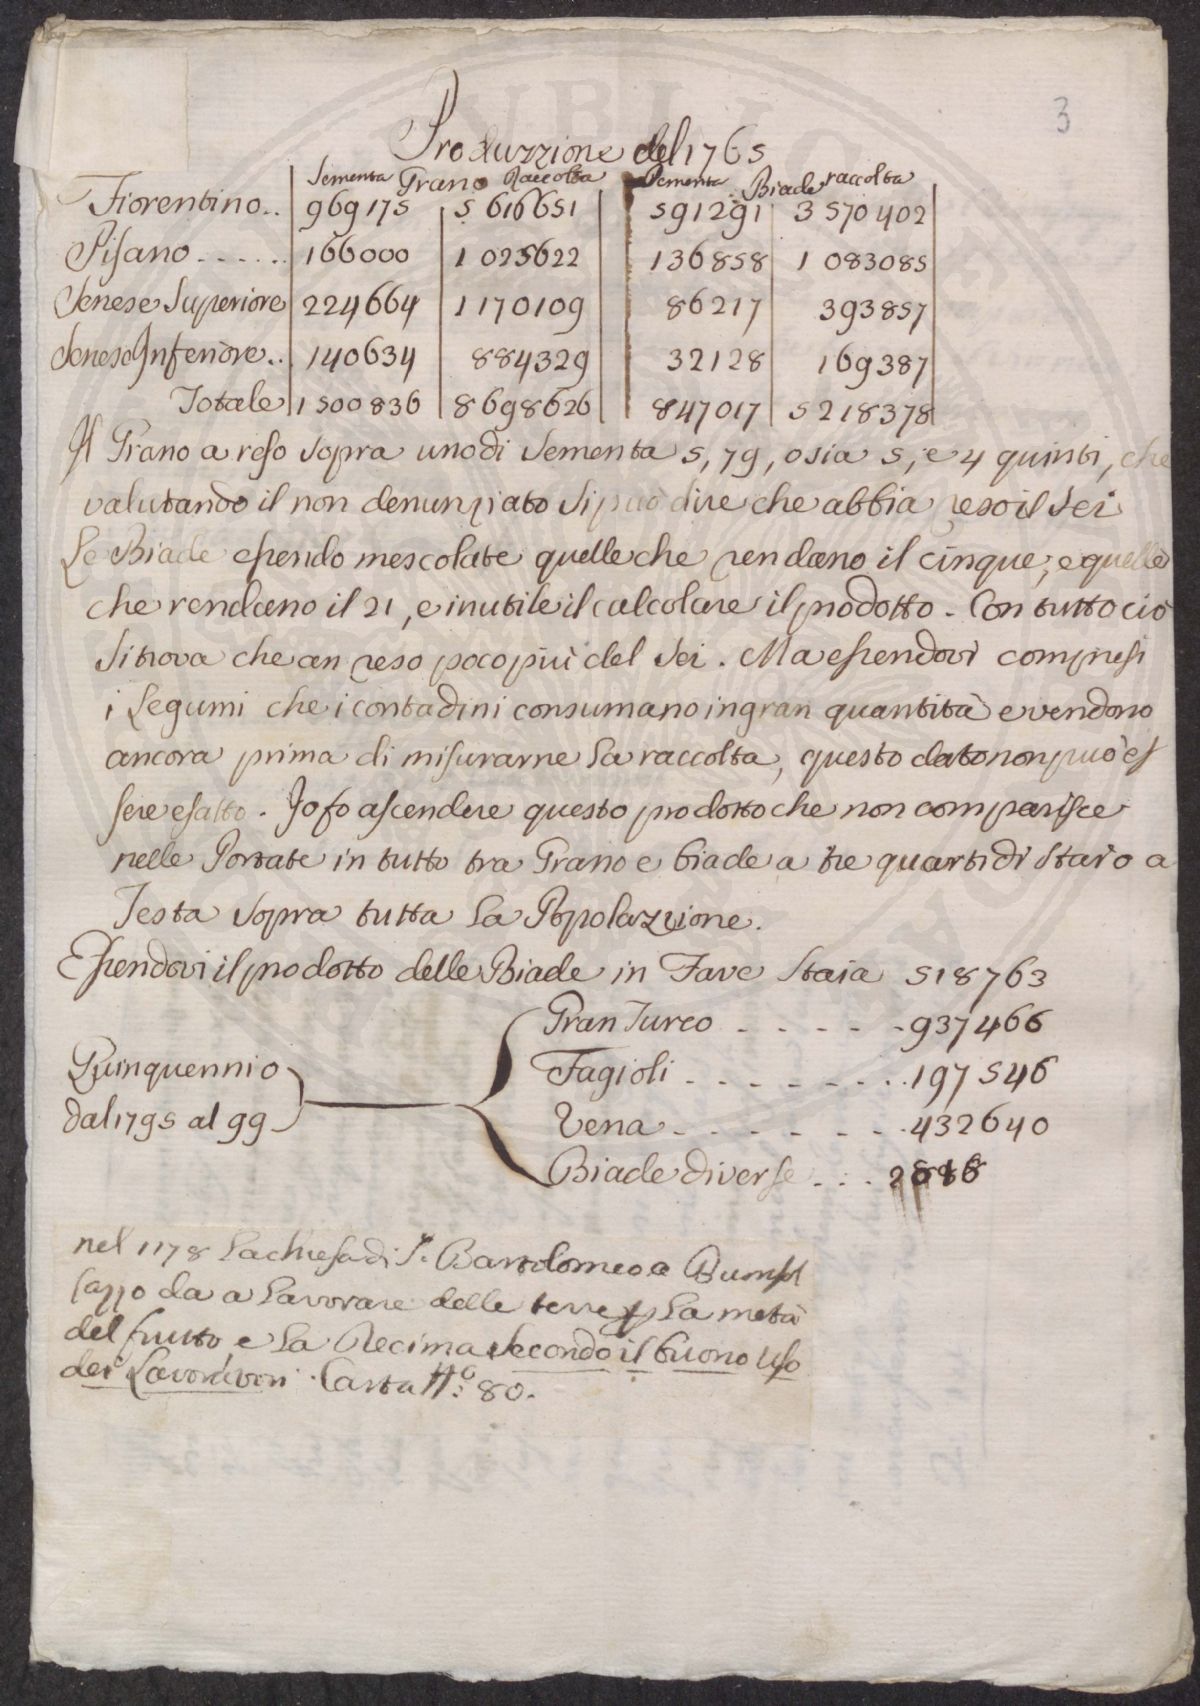 3
Produzzione del 1765
Sementa Grano Raccolta Sementa Biade raccolta
Fiorentino.. 969175 5616651 591291 3570402
Pisano ...... 166000 1025622 136858 1083085
Senese Superiore 224664 1170109 86217 393857
Senese Inferiore.. 140634 884329 32128 169387
Totale 1500836 8698626 847017 5218378
Il Grano a reso sopra uno di Sementa 5,79, o sia 5, e 4 quinti, che
valutando il non denunziato si può dire che abbia reso il Sei
Le Biade essendo mescolate quelle che rendano il cinque, e quelle
che rendano il 21, e inutile il calcolare il prodotto. Con tutto ciò
si trova che an reso poco più del Sei. Ma essendovi compresi
i Legumi che i contadini consumano in gran quantità e vendono
ancora prima di misurarne la raccolta, questo dato non può es
sere esatto. Io fo ascendere questo prodotto che non comparisce
nelle Portate in tutto tra Grano e biade a tre quarti di Staio a
Testa sopra tutta la Popolazzione.
Essendovi il prodotto delle Biade in Fave Staia 518763
Gran Turco - - - - - - 937466
Fagioli - - - - - - - . . 197546
Quinquennio
dal 1795 al 99
Vena - - - - - - - - 432640
Biade diverse - . .
nel 1178 La chiesa di S. Bartolomeo a
da a Lavorare delle terre p La metà
del frutto e La Decima secondo il buono Uso
dei Lavoratori. Carta N.º 80.